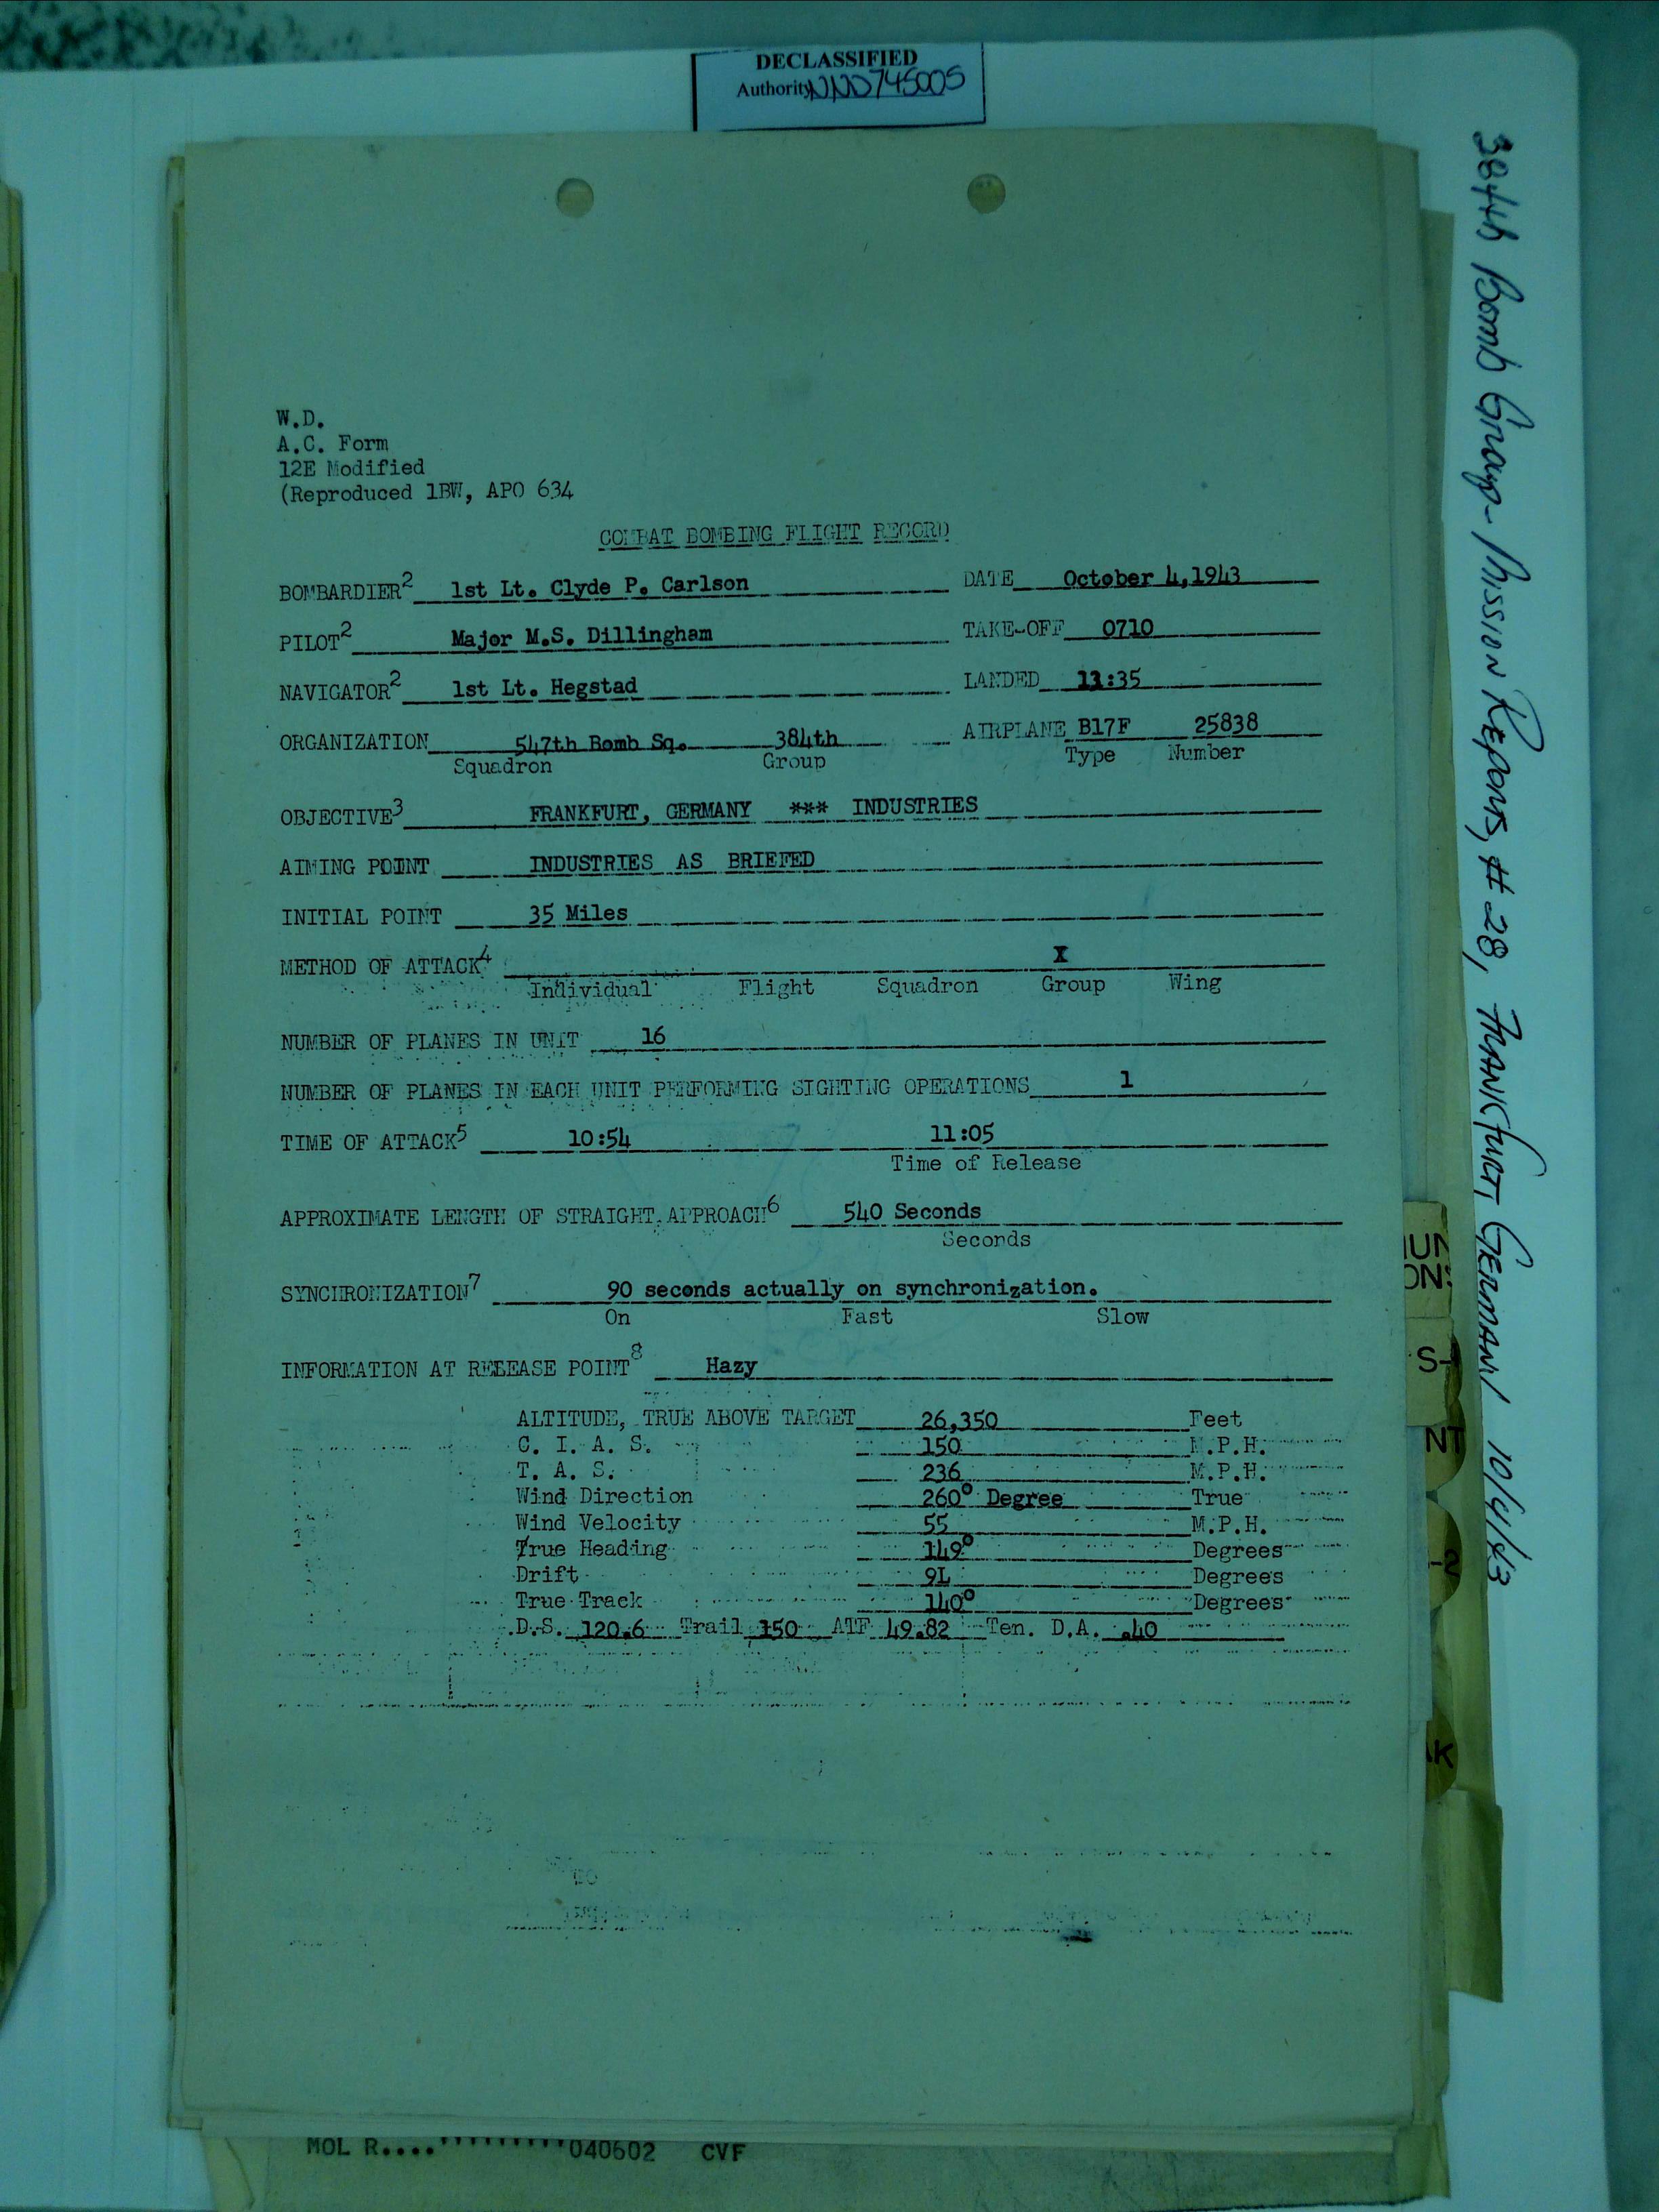 DECLASSIFIED
Authority NND745005
384th Bomb Group - Mission Reports, #28, Frankfurt, Germany 10/4/43
W.D.
A.C. Form
12E Modified
(Reproduced 1BW, APO 634
COMBAT BOMBING FLIGHT RECORD
BOMBARDIER2 1st Lt. Clyde P. Carlson DATE October 4,1943
PILOT2 Major M.S. Dillingham TAKE-OFF 0710
NAVIGATOR2 1st Lt. Hegstad LANDED 11:35
ORGANIZATION 547th Bomb Sq. 384th AIRPLANE B17F 25838
Squadron Group Type Number
OBJECTIVE3 FRANKFURT, GERMANY *** INDUSTRIES
AIMING POINT INDUSTRIES AS BRIEFED
INITIAL POINT 35 Miles
METHOD OF ATTACK4 X
Individual Flight Squadron Group Wing
NUMBER OF PLANES IN UNIT 16
NUMBER OF PLANES IN EACH UNIT PERFORMING SIGHTING OPERATIONS 1
TIME OF ATTACK5 10:54 11:05
Time of Release
APPROXIMATE LENGTH OF STRAIGHT APPROACH6 540 Seconds
Seconds
SYNCHRONIZATION7 90 seconds actually on synchronization.
On Fast Slow
INFORMATION AT RELEASE POINT8 Hazy
ALTITUDE, TRUE ABOVE TARGET 26,350 Feet
C. I. A. S. 150 M.P.H.
T. A. S. 236 M.P.H.
Wind Direction 260° Degree True
Wind Velocity 55 M.P.H.
True Heading 149° Degrees
Drift 9L Degrees
True Track 140° Degrees
D.S. 120.6 Trail 150 ATF 49.82 Ten. D.A. .40
S-
NT
-2
MOL R.... 040602 CVF